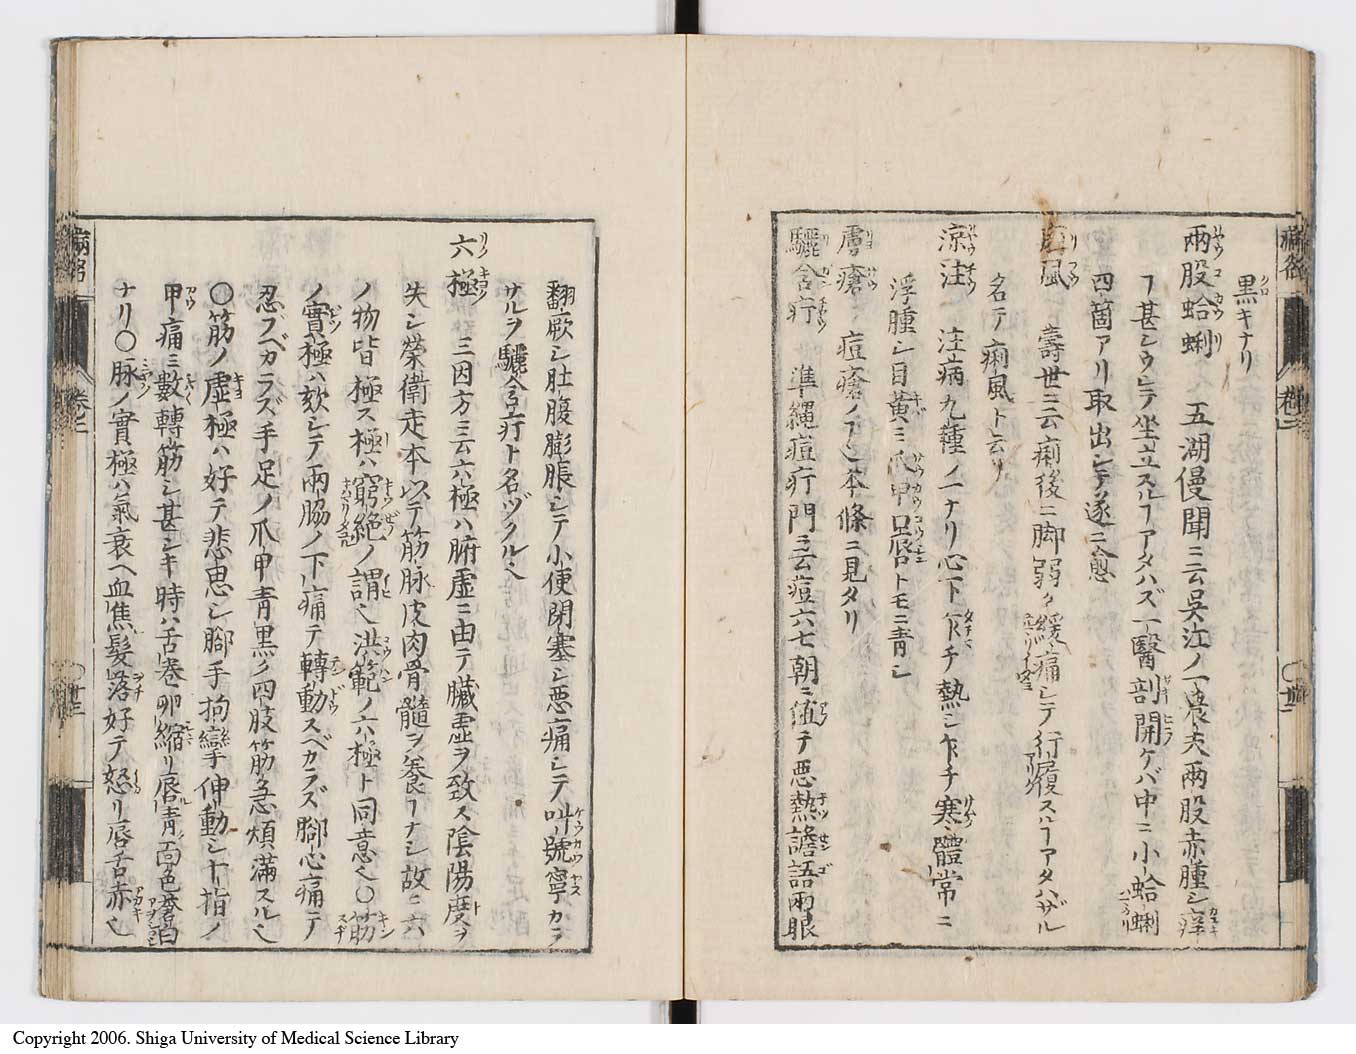 黒キナリ
兩股蛤蜊 五湖僈聞ニ云呉江ノ一農夫兩股赤腫シ痒
ヿ甚シウシテ坐立スルヿアタハズ一醫剖開ケバ中ニ小蛤蜊
四箇アリ取出シテ遂ニ愈
風 壽世ニ云痢後ニ脚弱ク緩痛シテ行履スルヿアタハザル
名テ痢風ト云リ
涼注 注病九種ノ一ナリ心下乍チ熱シ乍チ寒シ體常ニ
浮腫シ目黄ミ爪甲口唇トモニ青シ
膚瘡 痘瘡ノヿ也本條ニ見タリ
驪含疔 準縄痘疔門ニ云痘六七朝ニ値テ悪熱譫語兩眼
翻厥シ肚腹膨脹シテ小便閉塞シ悪痛シテ叫號寧カラ
サルヲ驪含疔ト名ヅクル也
六極 三因方ニ云六極ハ腑虚ニ由テ臓虚ヲ致ス陰陽度ヲ
失シ榮衛走本以テ筋脉皮肉骨髓ヲ養フヿナシ故ニ六
ノ物皆極ス極ハ窮絶ノ謂也洪範ノ六極ト同意也〇筋
ノ實極ハ欬シテ兩脇ノ下痛テ轉動スベカラズ脚心痛テ
忍フベカラズ手足ノ爪甲青黒ク四肢筋急煩滿スル也
〇筋ノ虚極ハ好テ悲思シ脚手拘攣伸動シ十指ノ
甲痛ミ數轉筋シ甚シキ時ハ舌卷卵縮リ唇青面色蒼白
ナリ〇脉ノ實極ハ氣衰ヘ血焦髮落好テ怒リ唇舌赤也
卷三
Copyright 2006. Shiga University of Medical Science Library